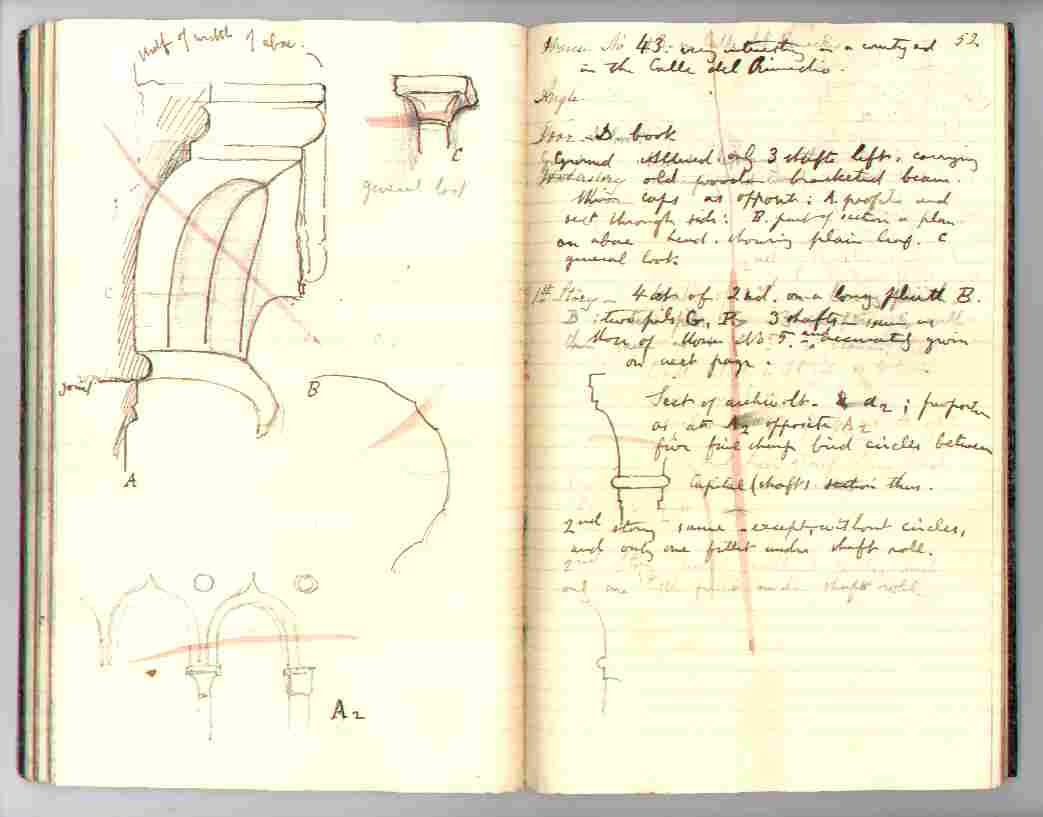 Half of width of abac.
C
general look
Joint
B
A
A2
52
House No 43: very interesting in a courtyard
in the Calle del Rimedio.
Angle
Door D. book
Ground altered. only 3 shafts left, carrying
old wooden bracketed beam.
caps as opposite: A. profile and
sect through side: B. part of section in plan
on abac head. showing plain leaf. C
general look
1st Story 4 of 2nd. on a long plinth B.
B : two pils G, P. 3 shafts same as
those of House No 5. and accurately given
on next page.
Sect of archivolt. a2 ; proportion
as at A2 opposite A2
five bird circles between
Capital (shaft) section thus.
2nd story same - except without circles,
and only one fillet under shaft roll.
2nd
only one under shaft roll